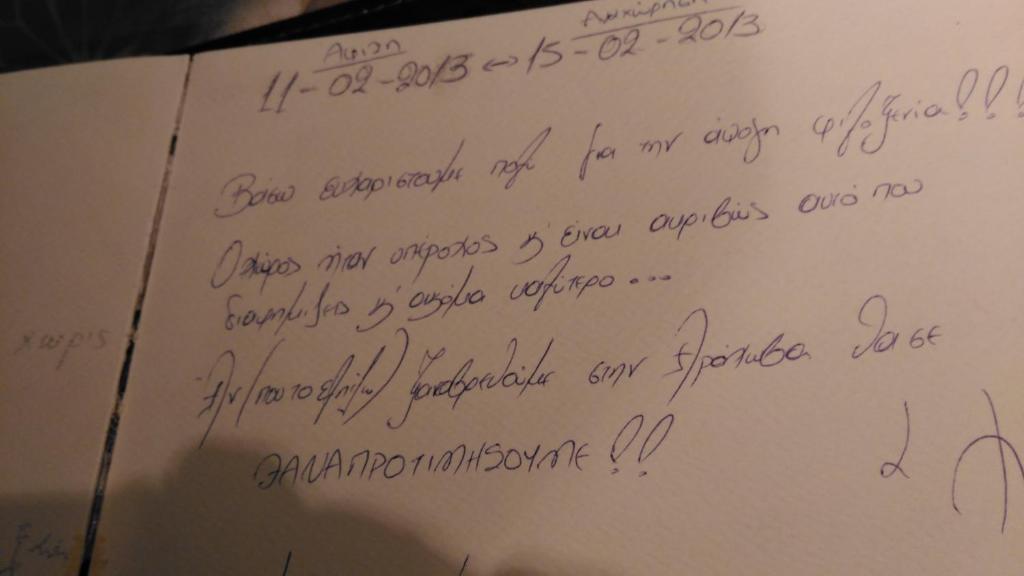 Άφιξη Αναχώρηση
11-02-2013 ↔ 15-02-2013
Βάσω ευχαριστούμε πολύ για την άψογη φιλοξενία!!!
Ο χώρος ήταν υπέροχος κ' είναι ακριβώς αυτό που
διαφημίζεις κ' ακόμα καλύτερο...
Αν (που το ελπίζω) ξαναβρεθούμε στην Αράχωβα θα σε
ΞΑΝΑΠΡΟΤΙΜΗΣΟΥΜΕ!!
χωρίς